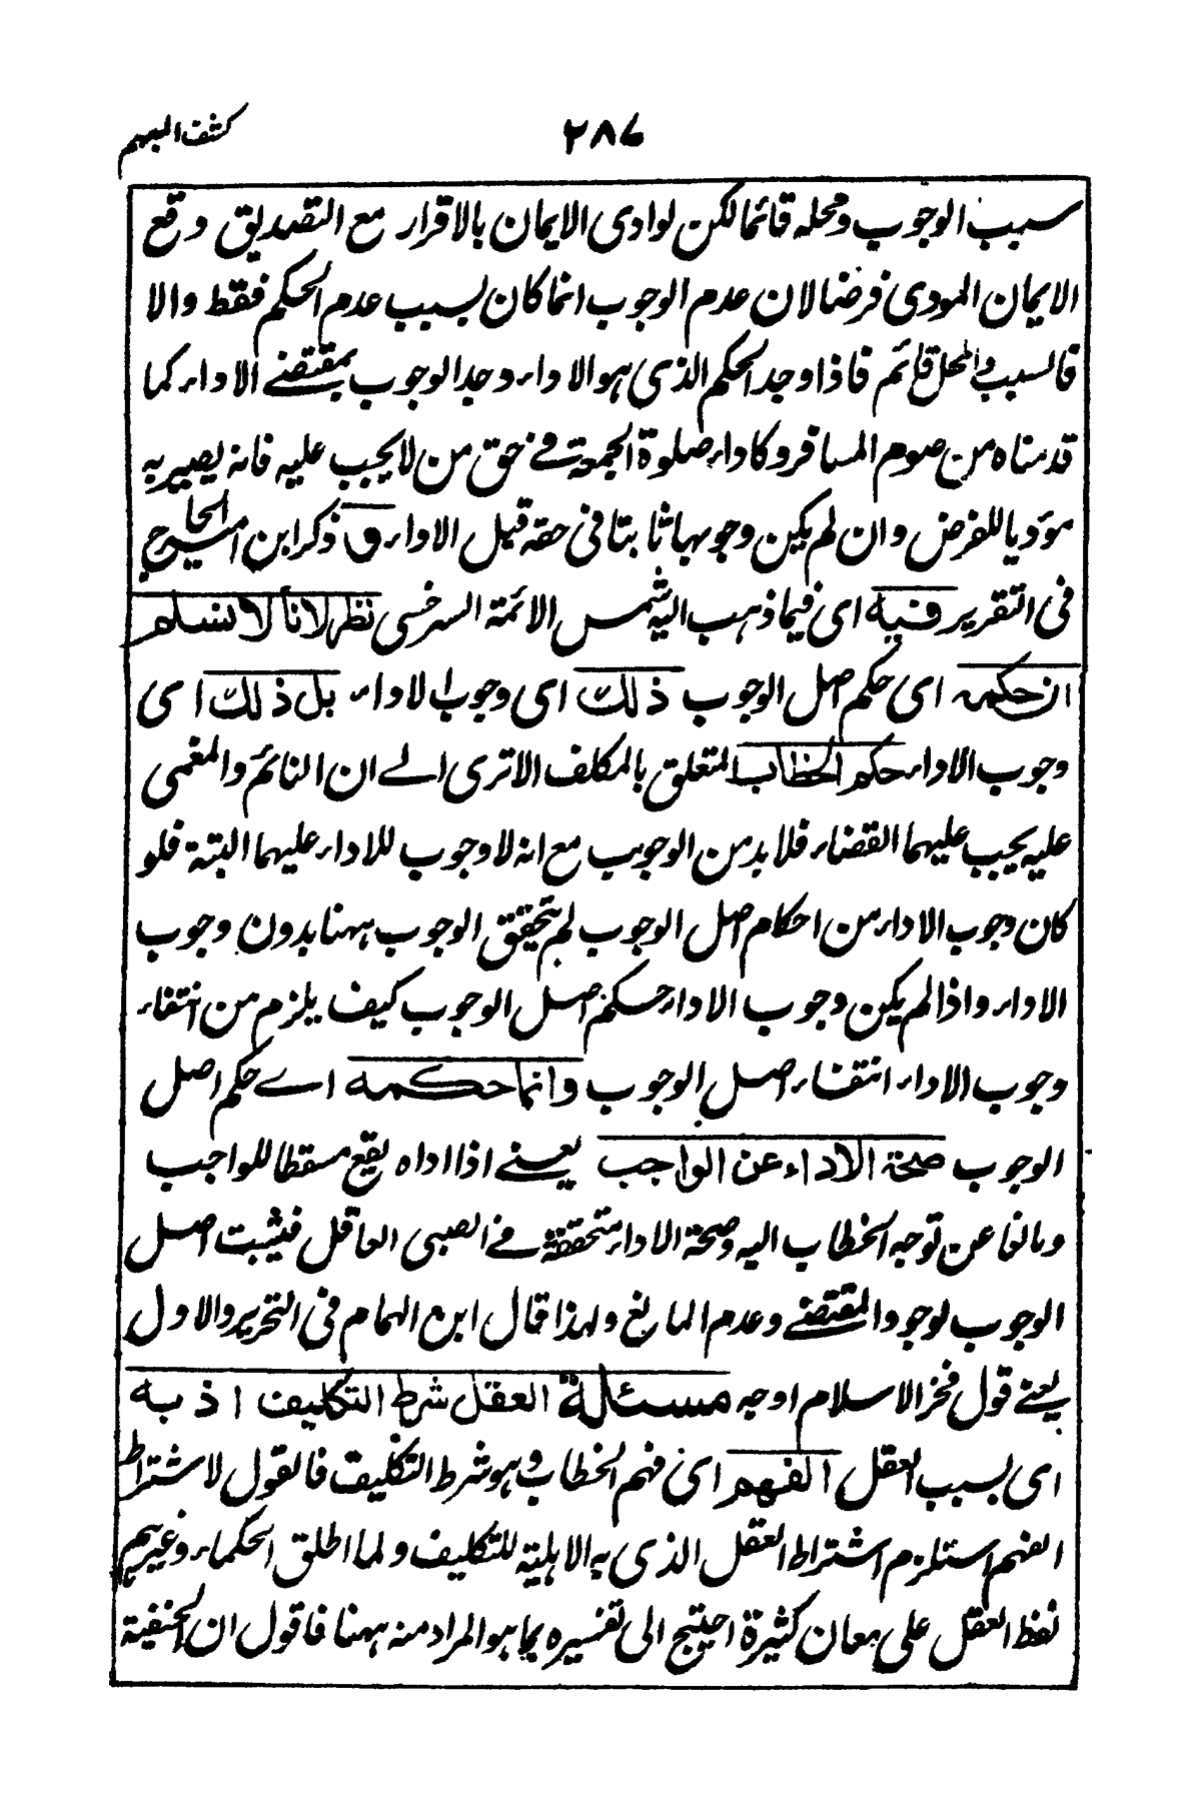 كشف المبهم
٢٨٦
سبب الوجوب ومحله قائما لكن لو ادى الايمان بالاقرار مع التصديق وقع
الايمان المودى فرضا لان عدم الوجوب انما كان بسبب عدم الحكم فقط والا
فالسبب والمحل قائم فاذا وجد الحكم الذى هو الاداء وجد الوجوب بمقتضے الاداء كما
قدمناه من صوم المسافر وكاداء صلوة الجمعة فے حق من لا يجب عليه فانه يصير به
مؤديا للفرض وان لم يكن وجوبها ثابتا فى حقه قبل الاداء ق ذكر ابن امير الحاج
فى التقرير فيه اى فيما ذهب اليه شمس الائمة السرخسى نظر لانا لا نسلم
ان حكمه اى حكم اصل الوجوب ذلك اى وجوب الاداء بل ذلك اى
وجوب الاداء حكم الخطاب المتعلق بالمكلف الا ترى الے ان النائم والمغمى
عليه يجب عليهما القضاء فلا بد من الوجوب مع انه لا وجوب للاداء عليهما البتة فلو
كان وجوب الاداء من احكام اصل الوجوب لم يتحقق الوجوب ههنا بدون وجوب
الاداء واذا لم يكن وجوب الاداء حكم اصل الوجوب كيف يلزم من انتفاء
وجوب الاداء انتفاء اصل الوجوب وانما حكمه اے حكم اصل
الوجوب صحة الاداء عن الواجب يعنے اذا اداه يقع مسقطا للواجب
ومانعا عن توجه الخطاب اليه وصحة الاداء متحققة فے الصبى العاقل فيثبت اصل
الوجوب لوجود المقتضے وعدم المانع ولهذا قال ابن الهمام فى التحرير والاول
يعنے قول فخر الاسلام اوجه مسئلة العقل شرط التكليف اذ به
اى بسبب العقل الفهم اى فهم الخطاب وهو شرط التكليف فالقول لاشتراط
الفهم استلزم اشتراط العقل الذى به الاهلية للتكليف ولما اطلق الحكماء وغيرهم
لفظ العقل على معان كثيرة احتيج الى تفسيره بما هو المراد منه ههنا فاقول ان الحنفية